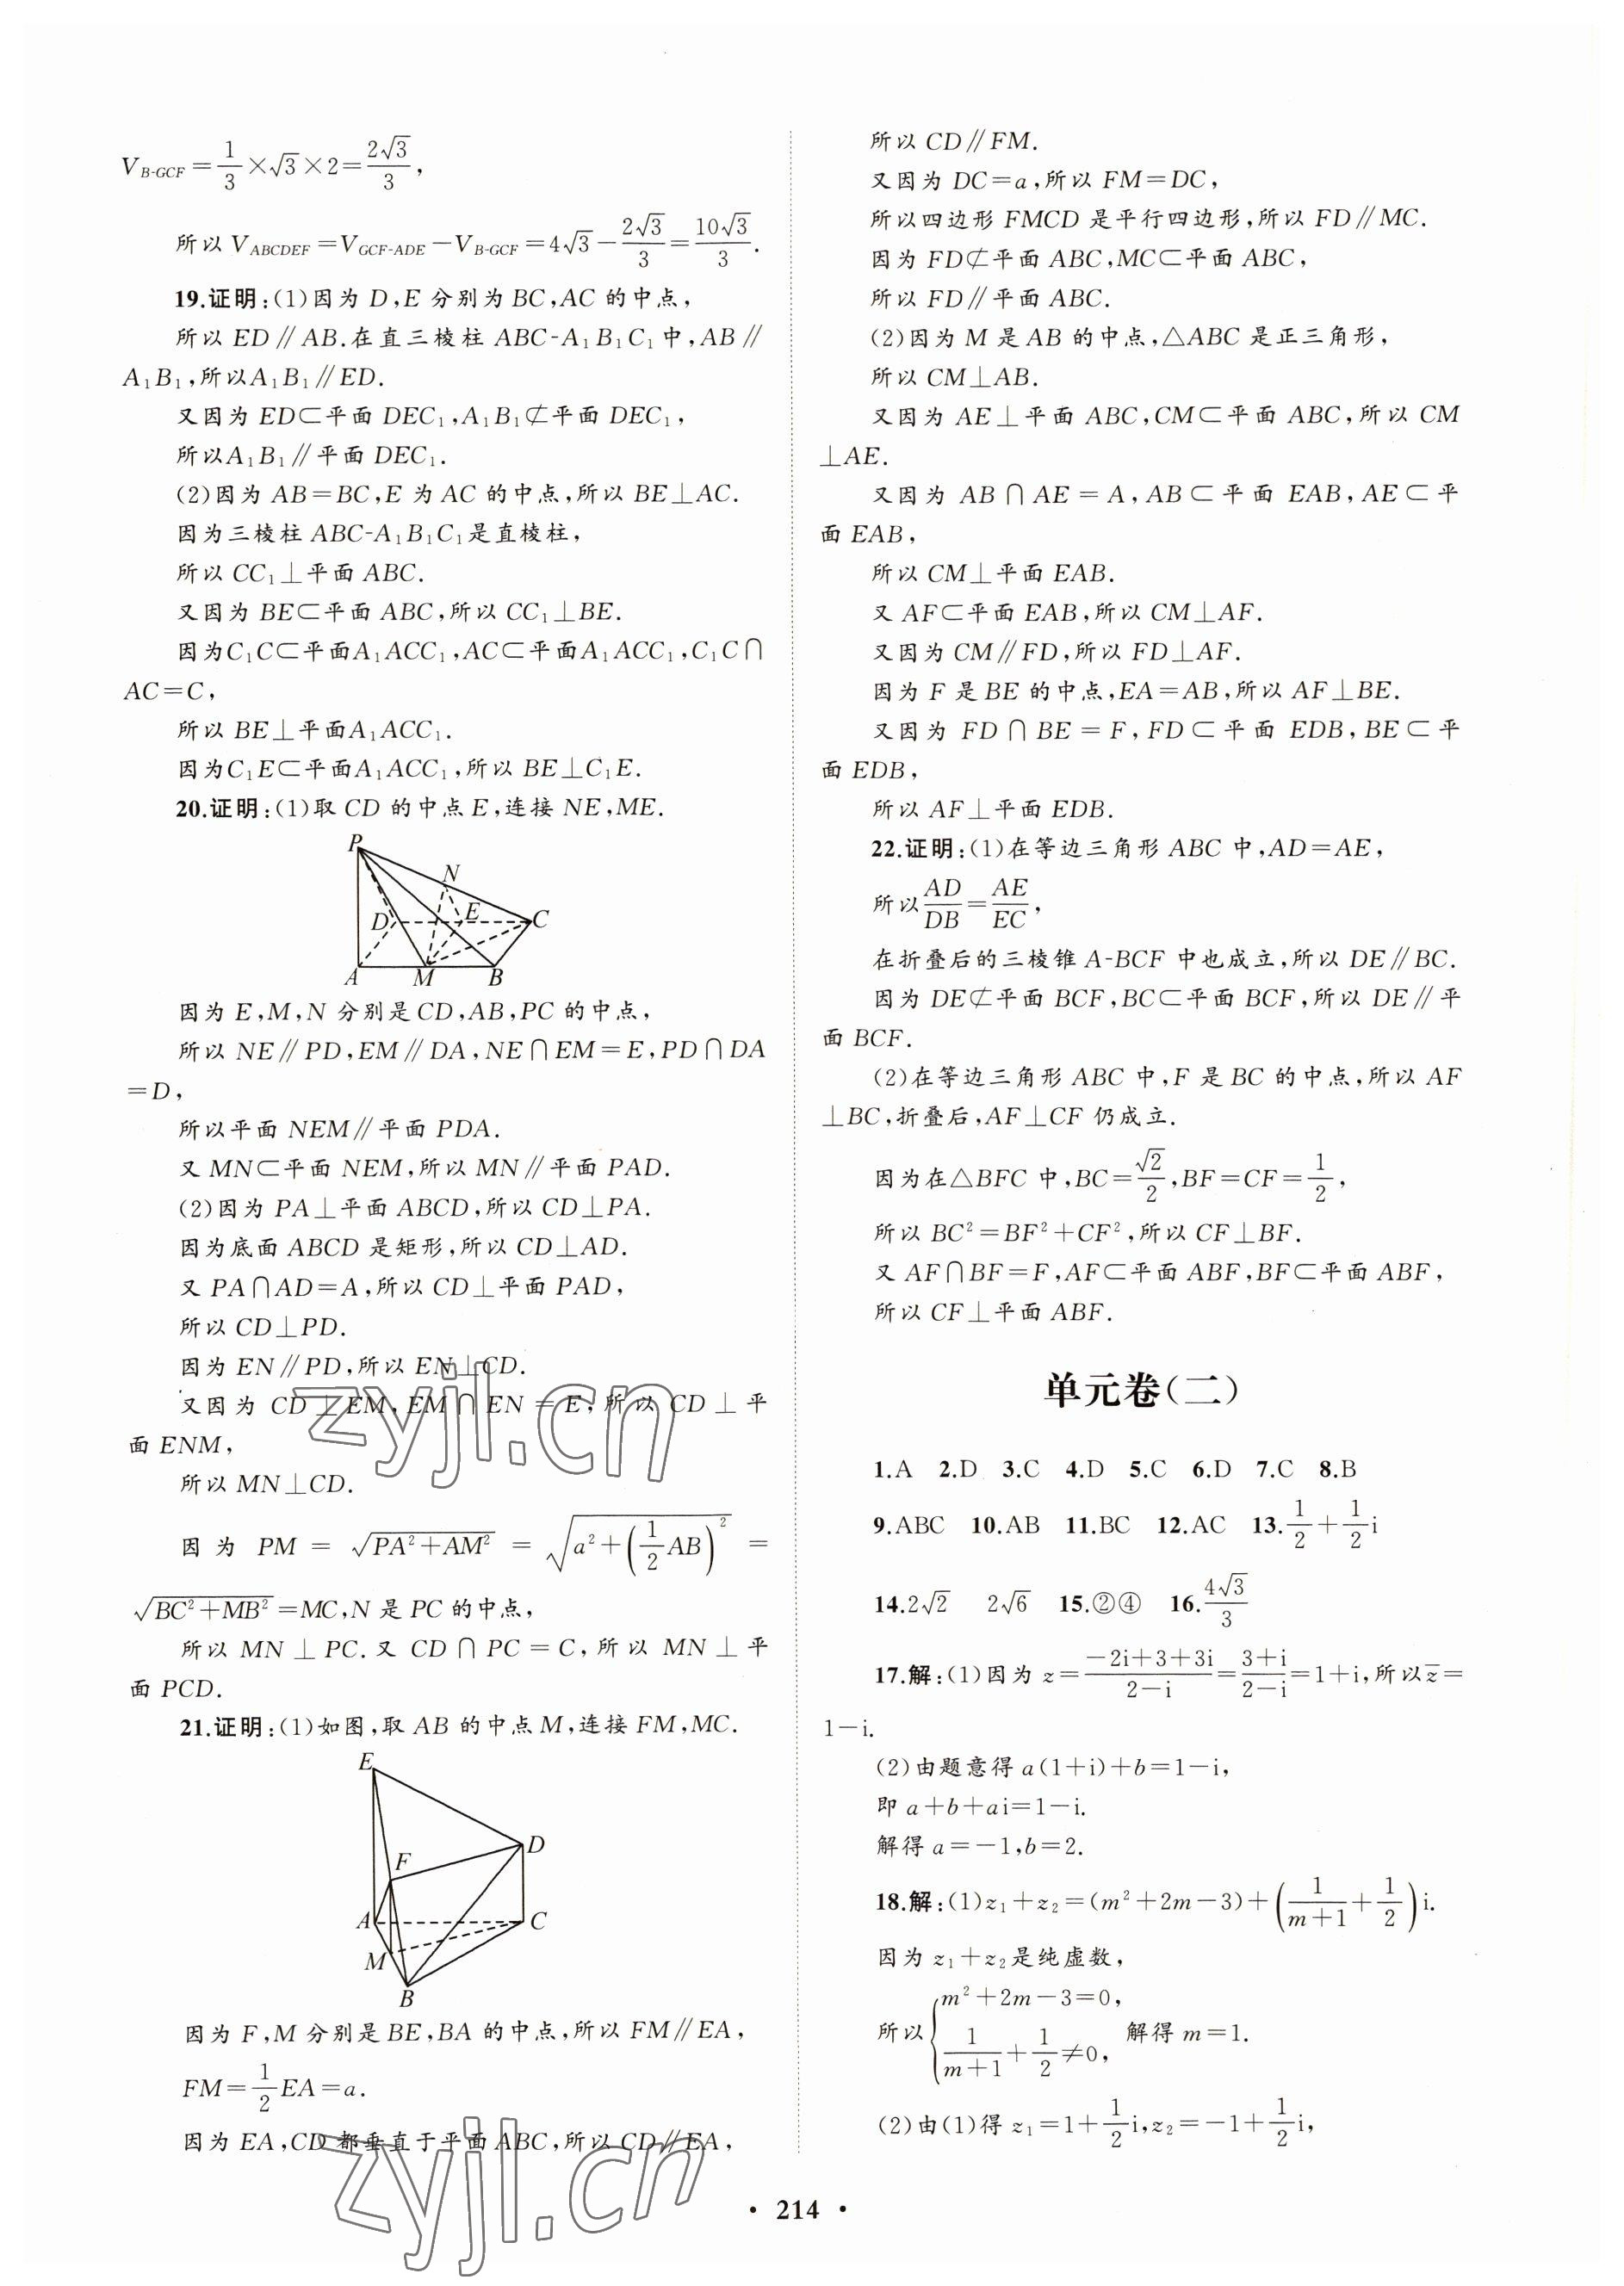 V_{B-GCF}=\frac{1}{3}×\sqrt{3}×2=\frac{2\sqrt{3}}{3},
所以 V_{ABCDEF}=V_{GCF-ADE}-V_{B-GCF}=4\sqrt{3}-\frac{2\sqrt{3}}{3}=\frac{10\sqrt{3}}{3}.
19.证明:(1)因为 D,E 分别为 BC,AC 的中点,
所以 ED∥AB.在直三棱柱 ABC-A₁B₁C₁中,AB∥
A₁B₁,所以A₁B₁∥ED.
又因为 ED⊂平面 DEC₁,A₁B₁⊄平面 DEC₁,
所以A₁B₁∥平面 DEC₁.
(2)因为 AB=BC,E 为 AC 的中点,所以 BE⊥AC.
因为三棱柱 ABC-A₁B₁C₁是直棱柱,
所以 CC₁⊥平面 ABC.
又因为 BE⊂平面 ABC,所以 CC₁⊥BE.
因为C₁C⊂平面A₁ACC₁,AC⊂平面A₁ACC₁,C₁C∩
AC=C,
所以 BE⊥平面A₁ACC₁.
因为C₁E⊂平面A₁ACC₁,所以 BE⊥C₁E.
20.证明:(1)取 CD 的中点 E,连接 NE,ME.
P
N
D E C
A M B
因为 E,M,N 分别是CD,AB,PC 的中点,
所以 NE∥PD,EM∥DA,NE∩EM=E,PD∩DA
=D,
所以平面 NEM∥平面 PDA.
又 MN⊂平面 NEM,所以 MN∥平面 PAD.
(2)因为 PA⊥平面 ABCD,所以 CD⊥PA.
因为底面 ABCD 是矩形,所以 CD⊥AD.
又 PA∩AD=A,所以 CD⊥平面 PAD,
所以 CD⊥PD.
因为 EN∥PD,所以 EN⊥CD.
又因为 CD⊥EM,EM∩EN=E,所以 CD⊥平
面 ENM,
所以 MN⊥CD.
因为 PM=\sqrt{PA²+AM²}=\sqrt{a²+(\frac{1}{2}AB)²}=
\sqrt{BC²+MB²}=MC,N 是 PC 的中点,
所以 MN⊥PC.又 CD∩PC=C,所以 MN⊥平
面 PCD.
21.证明:(1)如图,取 AB 的中点 M,连接 FM,MC.
E
D
F
A C
M
B
因为 F,M 分别是 BE,BA 的中点,所以 FM∥EA,
FM=\frac{1}{2}EA=a.
因为 EA,CD 都垂直于平面 ABC,所以 CD∥EA,
所以 CD∥FM.
又因为 DC=a,所以 FM=DC,
所以四边形 FMCD 是平行四边形,所以 FD∥MC.
因为 FD⊄平面 ABC,MC⊂平面 ABC,
所以 FD∥平面 ABC.
(2)因为 M 是 AB 的中点,△ABC 是正三角形,
所以 CM⊥AB.
又因为 AE⊥平面 ABC,CM⊂平面 ABC,所以 CM
⊥AE.
又因为 AB∩AE=A,AB⊂平面 EAB,AE⊂平
面 EAB,
所以 CM⊥平面 EAB.
又 AF⊂平面 EAB,所以 CM⊥AF.
又因为 CM∥FD,所以 FD⊥AF.
因为 F 是 BE 的中点,EA=AB,所以 AF⊥BE.
又因为 FD∩BE=F,FD⊂平面 EDB,BE⊂平
面 EDB,
所以 AF⊥平面 EDB.
22.证明:(1)在等边三角形 ABC 中,AD=AE,
所以\frac{AD}{DB}=\frac{AE}{EC},
在折叠后的三棱锥 A-BCF 中也成立,所以 DE∥BC.
因为 DE⊄平面 BCF,BC⊂平面 BCF,所以 DE∥平
面 BCF.
(2)在等边三角形 ABC 中,F 是 BC 的中点,所以 AF
⊥BC,折叠后,AF⊥CF 仍成立.
因为在△BFC 中,BC=\frac{\sqrt{2}}{2},BF=CF=\frac{1}{2},
所以 BC²=BF²+CF²,所以 CF⊥BF.
又 AF∩BF=F,AF⊂平面 ABF,BF⊂平面 ABF,
所以 CF⊥平面 ABF.
单元卷(二)
1.A 2.D 3.C 4.D 5.C 6.D 7.C 8.B
9.ABC 10.AB 11.BC 12.AC 13.\frac{1}{2}+\frac{1}{2}i
14.2\sqrt{2} 2\sqrt{6} 15.②④ 16.\frac{4\sqrt{3}}{3}
17.解:(1)因为 z=\frac{-2i+3+3i}{2-i}=\frac{3+i}{2-i}=1+i,所以\overline{z}=
1-i.
(2)由题意得 a(1+i)+b=1-i,
即 a+b+ai=1-i.
解得 a=-1,b=2.
18.解:(1)z₁+z₂=(m²+2m-3)+(\frac{1}{m+1}+\frac{1}{2})i.
因为 z₁+z₂是纯虚数,
所以{m²+2m-3=0, \frac{1}{m+1}+\frac{1}{2}≠0, 解得 m=1.
(2)由(1)得 z₁=1+\frac{1}{2}i,z₂=-1+\frac{1}{2}i,
• 214 •
zyjl.cn
zyjl.cn